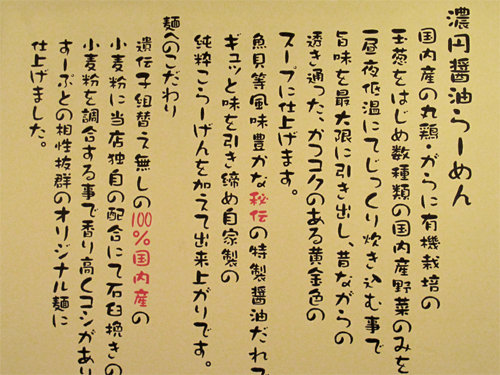 濃円醤油らーめん
国内産の丸鶏・がらに有機栽培の
玉葱をはじめ数種類の国内産野菜のみを
一昼夜低温にてじっくり炊き込む事で
旨味を最大限に引き出し、昔ながらの
透き通った、かつコクのある黄金色の
スープに仕上げます。
魚貝等風味豊かな秘伝の特製醤油だれで
ギュッと味を引き締め自家製の
純粋こらーげんを加えて出来上がりです。
麺へのこだわり
遺伝子組替え無しの100%国内産の
小麦粉に当店独自の配合にて石臼挽きの
小麦粉を調合する事で香り高くコシがあり
すーぷとの相性抜群のオリジナル麺に
仕上げました。